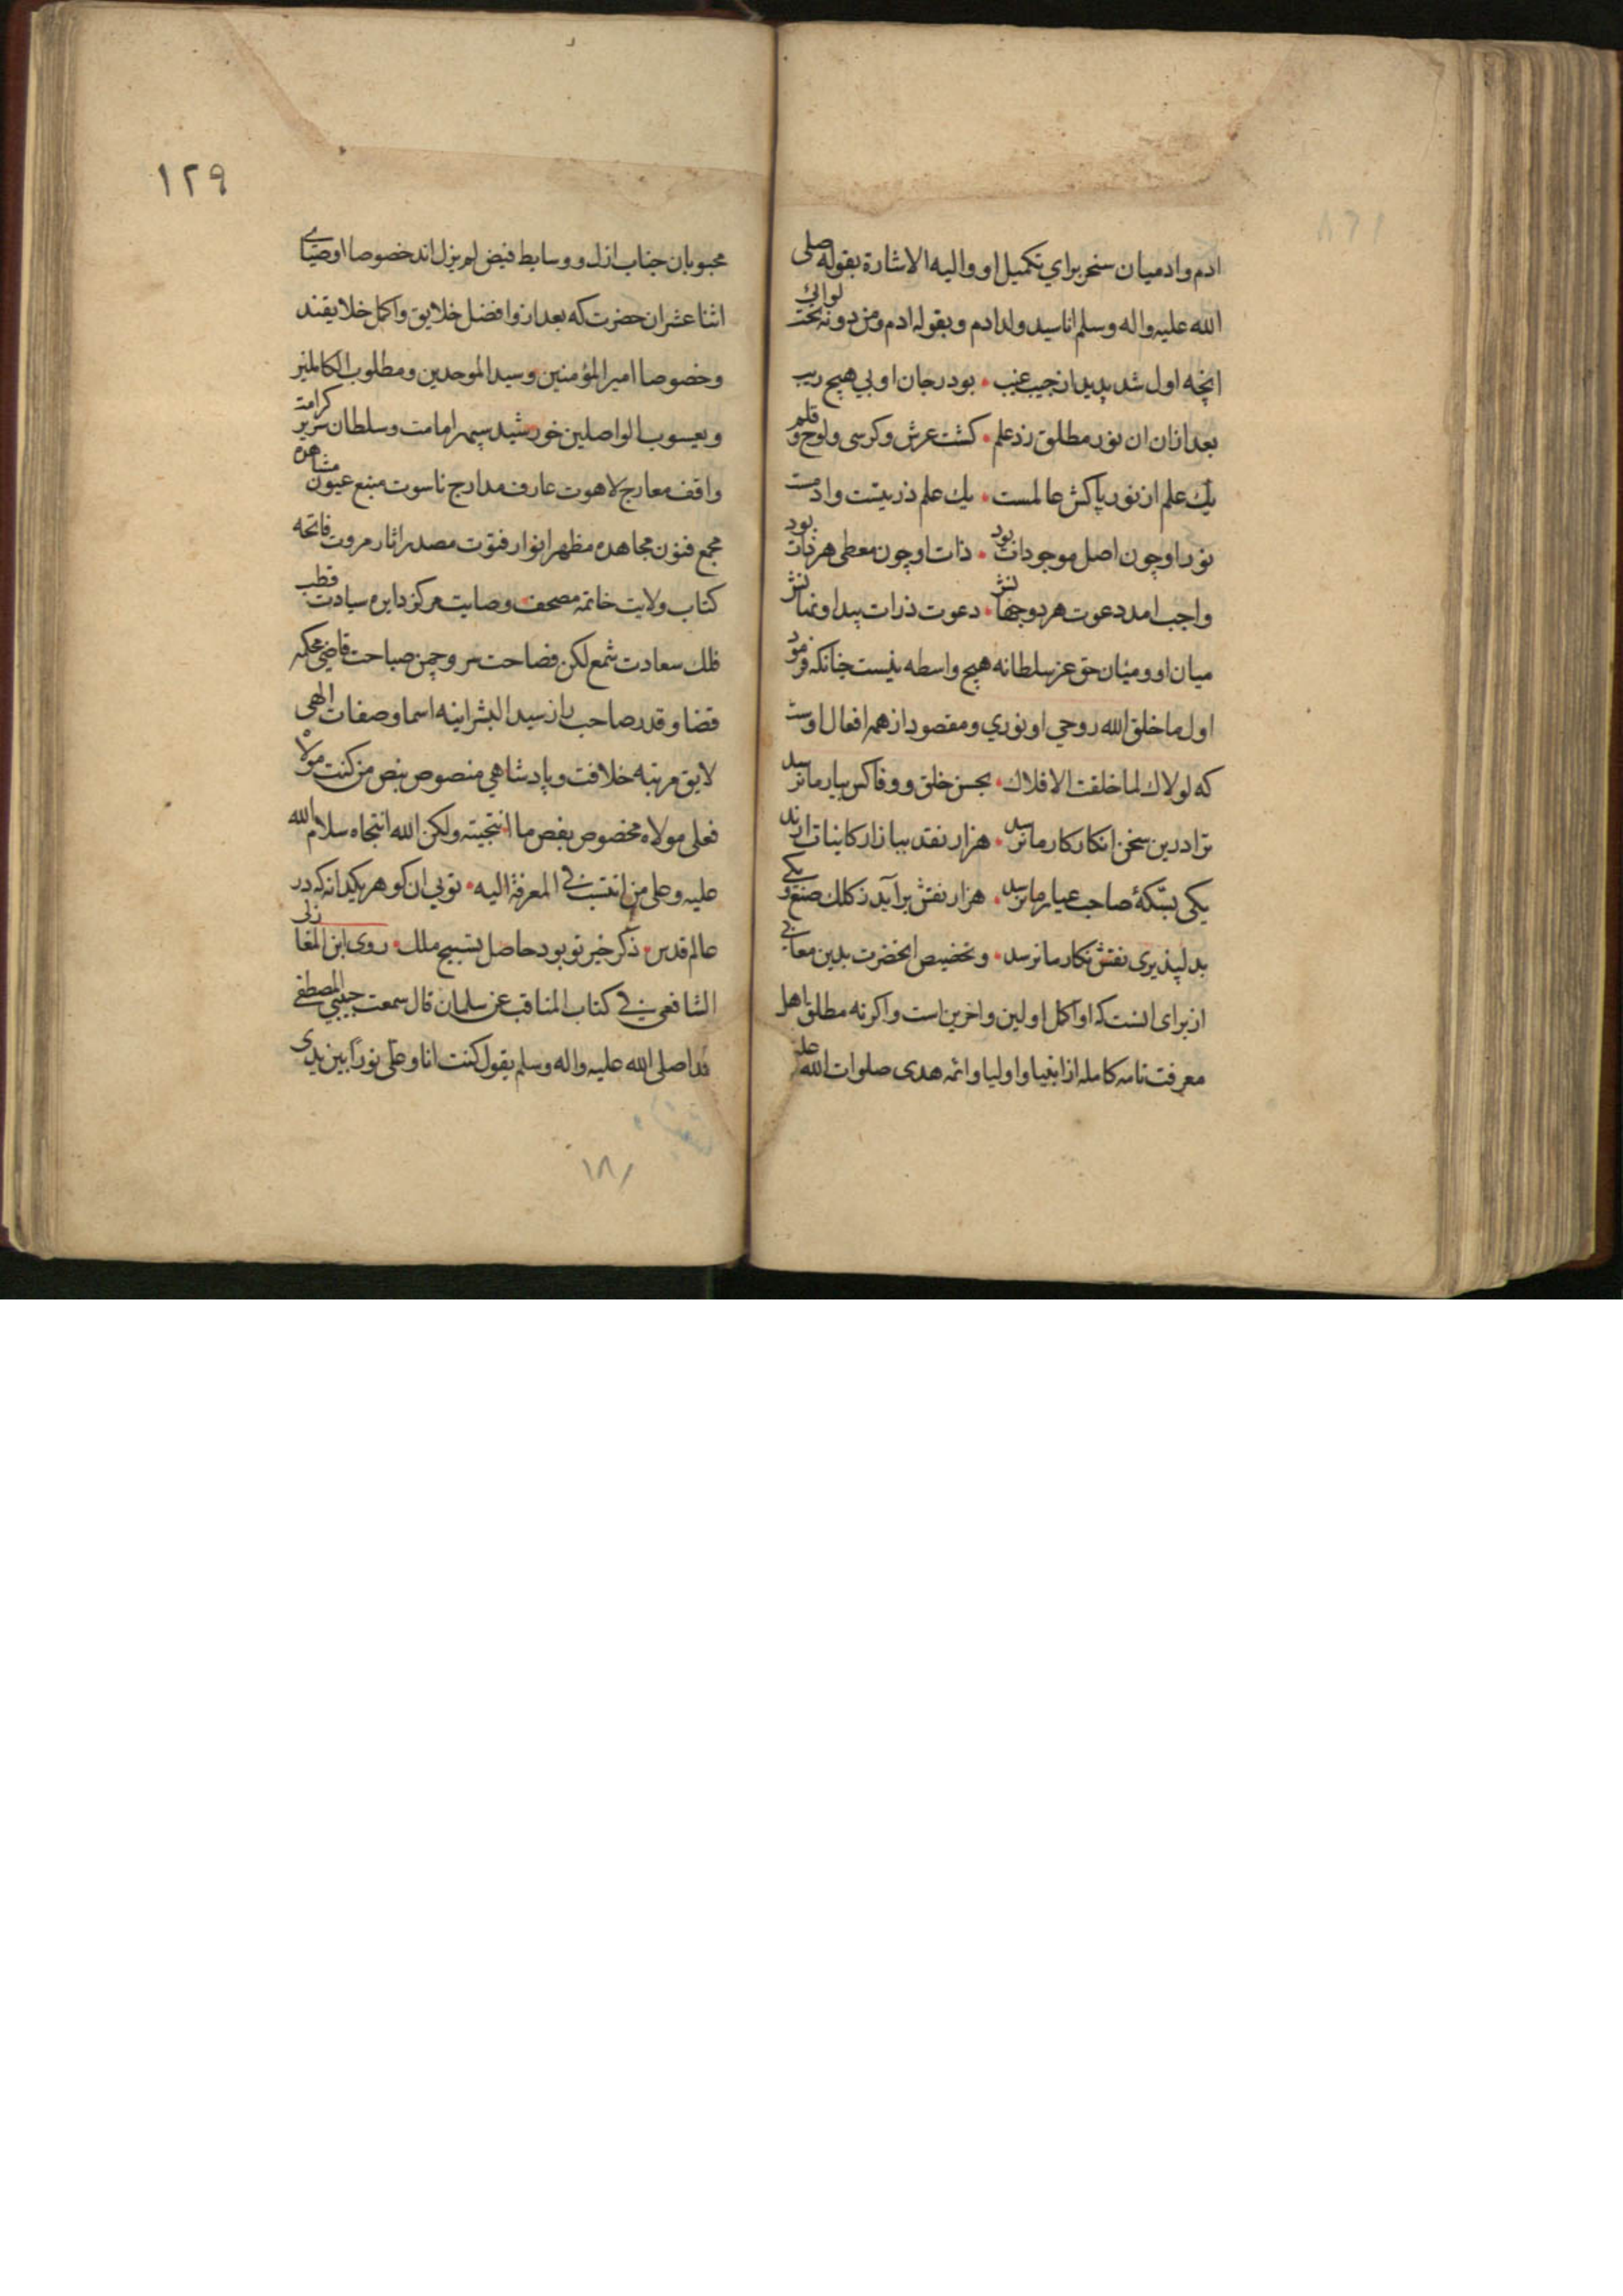 ادم وادمیان سخر برای تکمیل او والیه الاشارة بقوله صلی
الله علیه واله وسلم انا سید ولد ادم وبقوله ادم ومن دونه تحت لوائی
انچه اول شد پدید از جیب غیب • بود بی هیچ ریب
بعد ازان ان نور مطلق زد علم • کشت عرش وکرسی ولوح و قلم
یك علم از نور پاکش عالمست • یك علم ذریتست وادمست
نور او چون اصل موجودات بود • ذات او چون معطی هر ذات بود
واجب امد دعوت هر دو جهانش • دعوت ذرات پیدا ونهانش
میان او ومیان حق عز سلطانه هیچ واسطه نیست چنانکه فرمود
اول ما خلق الله روحی او نوری ومقصود از همه افعال اوست
که لولاك لما خلقت الافلاك • بحسن خلق ووفا کس بیار ما نرسد
ترا درین سخن انکار کار ما نرسد • هزار نقد ببازار کاینات ارند
یکی بسکهٔ صاحب عیار ما نرسد • هزار نقش برآید ز کلك صنع و یکی
بدلپذیری نقش نکار ما نرسد • وتخصیص انحضرت بدین معانی
از برای انست که او اکمل اولین واخرین است واکرنه مطلق اهل
معرفت تامه کامله از انبیا واولیا وائمه هدی صلوات الله علیهم
۱۲۹
محبوبان جناب ازل و وسایط فیض لم یزل اند خصوصا اوصیای
اثنا عشر ان حضرت که بعد ازو افضل خلایق واکمل خلایقند
وخصوصا امیر المؤمنین وسید الموحدین ومطلوب الکاملین
ویعسوب الواصلین خورشید سپهر امامت وسلطان سریر کرامت
واقف معارج لاهوت عارف مدارج ناسوت منبع عیون مشاهده
مجمع فنون مجاهده مظهر انوار فتوت مصدر اثار مروت فاتحه
کتاب ولایت خاتمه مصحف وصایت مرکز دایره سیادت قطب
فلك سعادت شمع لکن فصاحت سرو چمن صباحت قاضی محکمه
قضا وقدر صاحب راز سید البشر اینه اسما وصفات الهی
لایق مرتبه خلافت وپادشاهی منصوص بنص من کنت مولاه
فعلی مولاه مخصوص بفص ما انتجیته ولکن الله انتجاه سلام الله
علیه وعلی من انتسب فی المعرفة الیه • تویی ان کوهر یکدانه که در
عالم قدس • ذکر خیر تو بود حاصل تسبیح ملك • روی ابن المغازلی
الشافعی فی کتاب المناقب عن سلمان قال سمعت حبیبی المصطفی
محمدا صلی الله علیه واله وسلم یقول کنت انا وعلی نورا بین یدی
۱۸۱